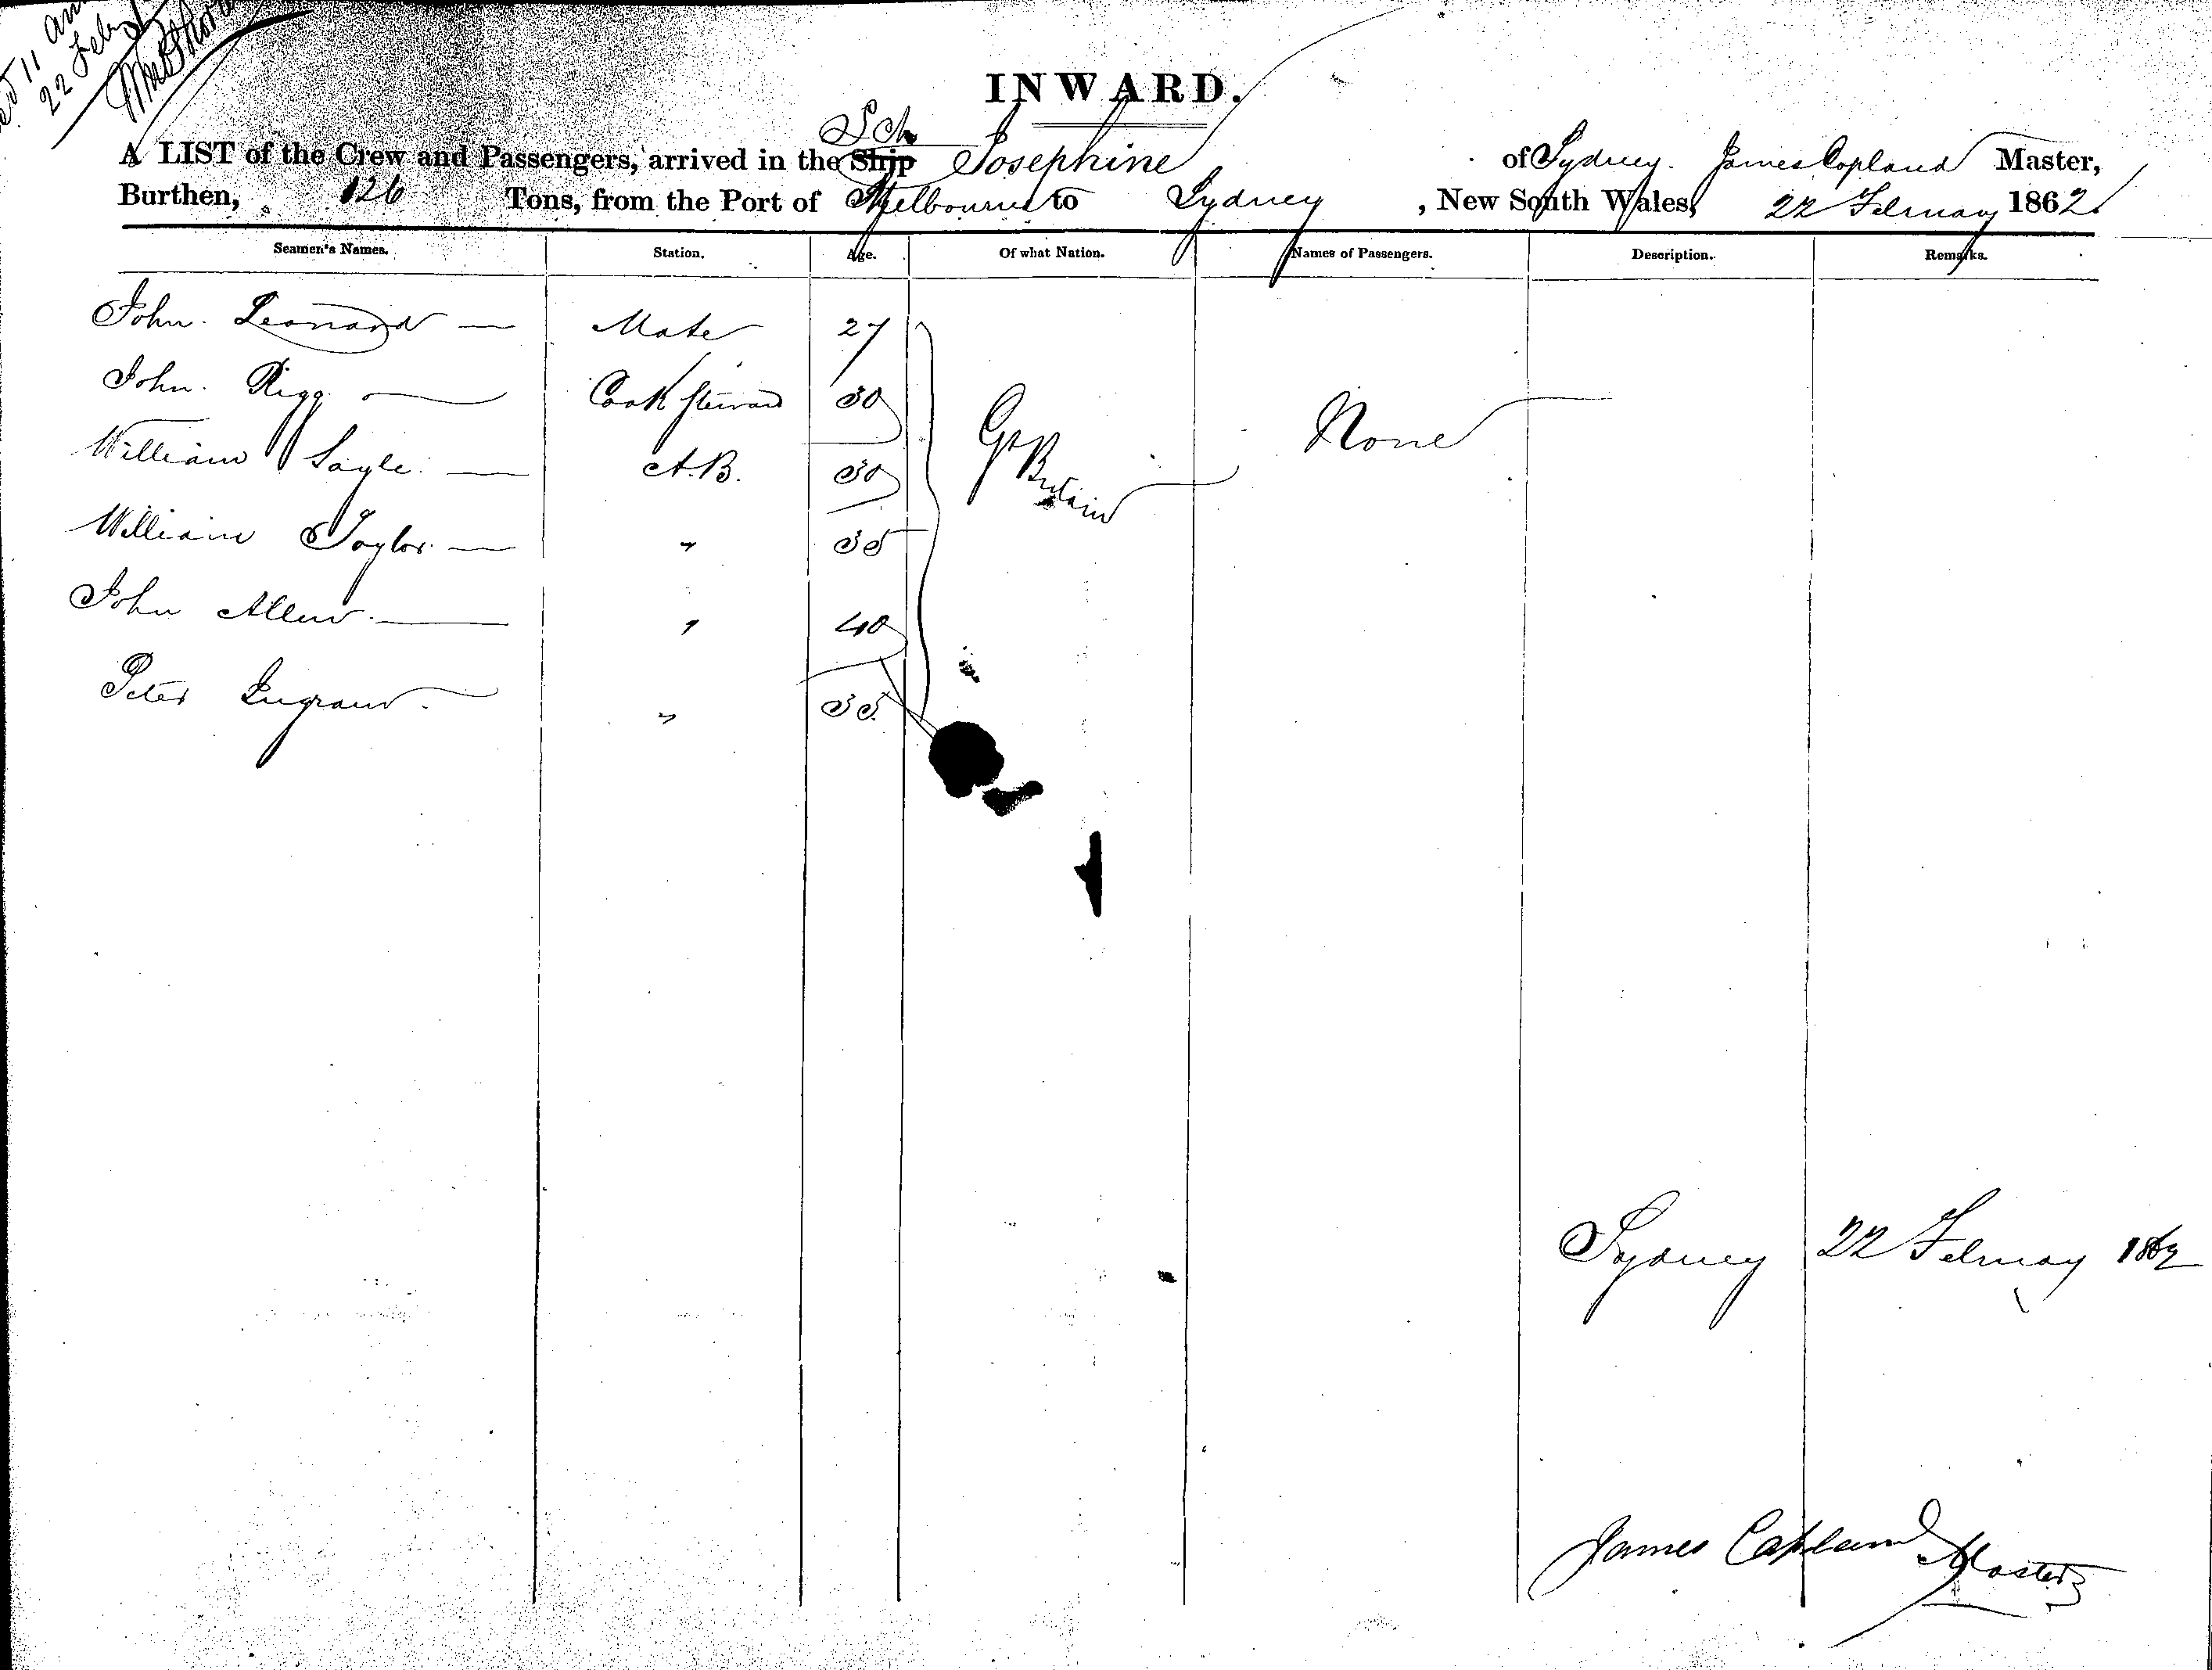 11 am
22 Feby
INWARD.
Sch
A LIST of the Crew and Passengers, arrived in the Ship Josephine of Sydney. James Copland Master,
Burthen, 126 Tons, from the Port of Melbourne to Sydney, New South Wales, 22 February 1862
Seamen's Names. Station. Age. Of what Nation. Names of Passengers. Description. Remarks.
John Leonard — Mate 27
John Rigg — Cook Steward 30 Gt Britain None
William Sayle — A.B. 30
William Taylor — " 35
John Allen — " 40
Peter Ingram " 35
Sydney 22 February 1862
James Copland Master